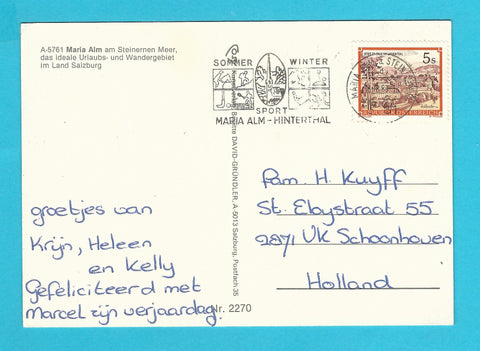 A-5761 Maria Alm am Steinernen Meer,
das ideale Urlaubs- und Wandergebiet
im Land Salzburg
SOMMER WINTER
SPORT
MARIA ALM - HINTERTHAL
5s
REPUBLIK ÖSTERREICH
Brigitte DAVID-GRÜNDLER, A-5013 Salzburg, Postfach 35
groetjes van
Krijn, Heleen
en Kelly
Gefeliciteerd met
Marcel zijn verjaardag.
Nr. 2270
Fam. H. Kuyff
St. Ebystraat 55
2871 VK Schoonhoven
Holland